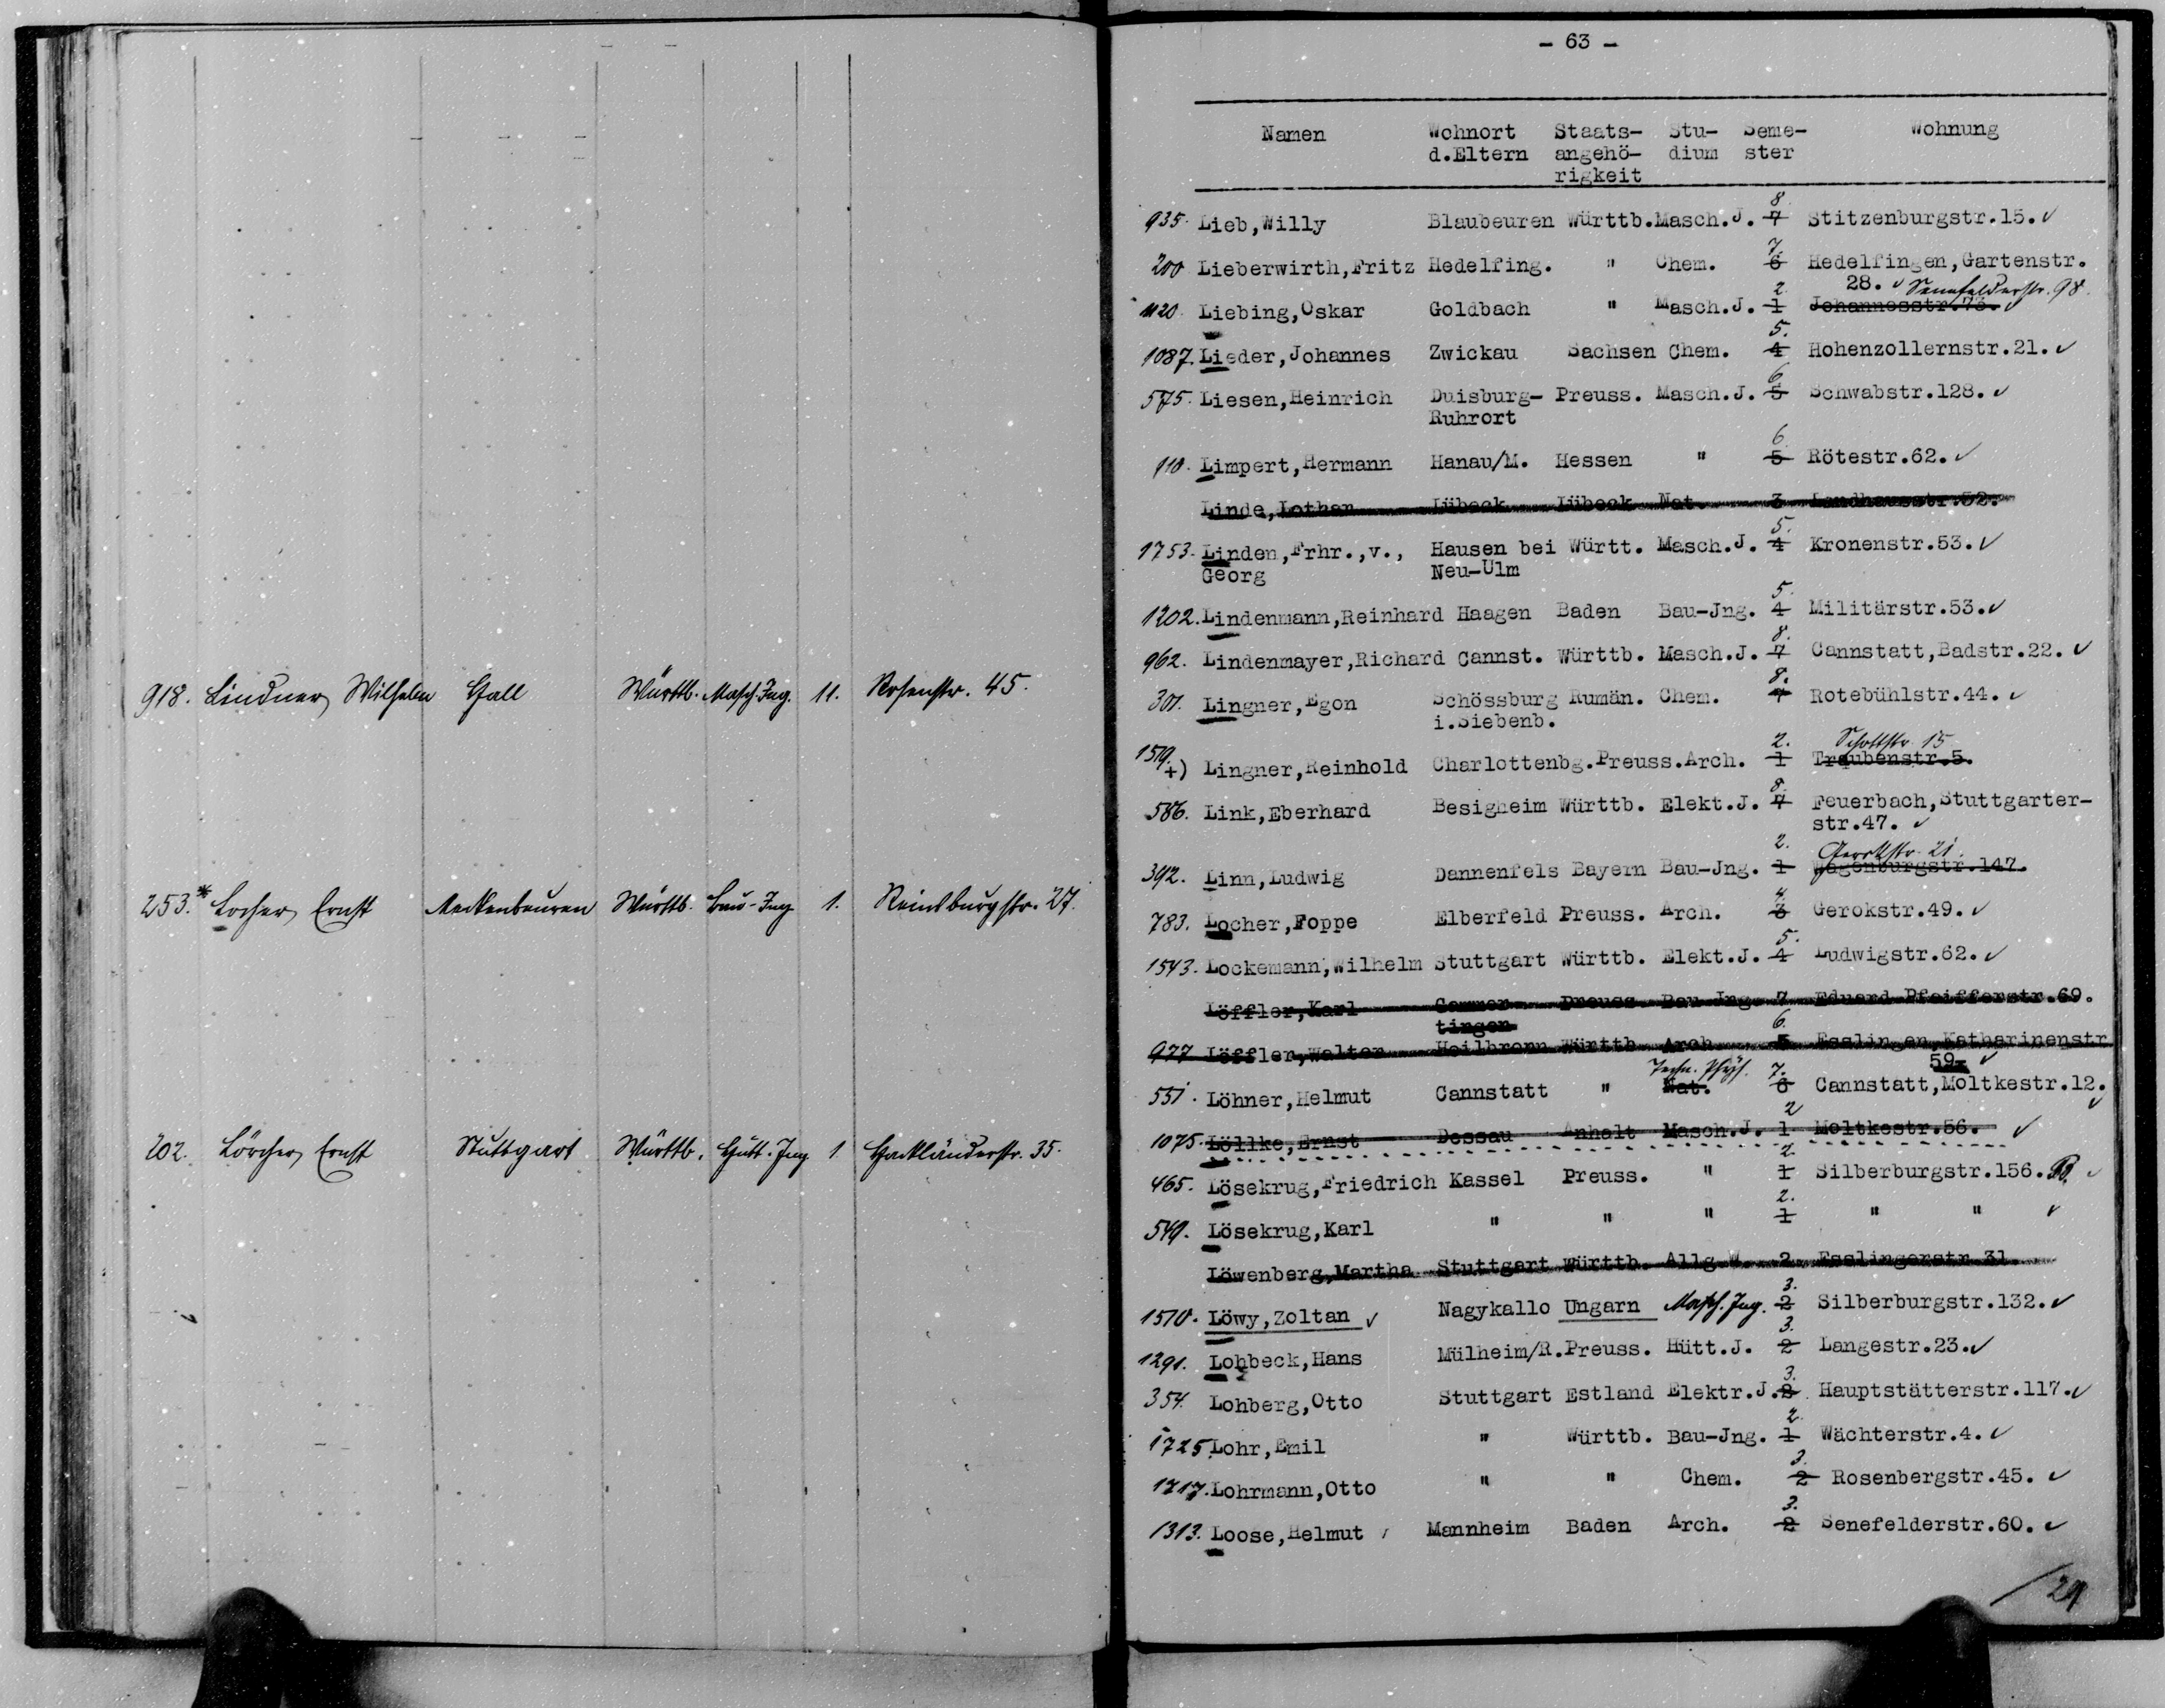 918. Lindner Wilhelm Hall Württb. Masch. Ing. 11. Rosenstr. 45.
253.* Locher Ernst Meckenbeuren Württb. Bau-Ing. 1. Reinsburgstr. 27.
202. Lörcher Ernst Stuttgart Württb. Hütt. Ing 1 Hackländerstr. 35.
- 63 -
Namen Wohnort Staats- Stu- Seme- Wohnung
d.Eltern angehö- dium ster
rigkeit
8
935. Lieb,Willy Blaubeuren Württb.Masch.J. 7 Stitzenburgstr.15. ✓
7.
200 Lieberwirth,Fritz Hedelfing. " Chem. 6 Hedelfingen,Gartenstr.
2. 28. ✓ Senefelderstr. 98.
1120. Liebing,Oskar Goldbach " Masch.J. 1 Johannesstr.73. ✓
5.
1087. Lieder,Johannes Zwickau Sachsen Chem. 4 Hohenzollernstr.21. ✓
6
575. Liesen,Heinrich Duisburg- Preuss. Masch.J. 5 Schwabstr.128. ✓
Ruhrort
6
110. Limpert,Hermann Hanau/M. Hessen " 5 Rötestr.62. ✓
Linde,Lothar Lübeck Lübeck Nat. 3 Landhausstr.52.
5.
1753. Linden,Frhr.,v., Hausen bei Württ. Masch.J. 4 Kronenstr.53. ✓
Georg Neu-Ulm
5.
1202. Lindenmann,Reinhard Haagen Baden Bau-Jng. 4 Militärstr.53. ✓
8.
962. Lindenmayer,Richard Cannst. Württb. Masch.J. 7 Cannstatt,Badstr.22. ✓
8.
301. Lingner,Egon Schössburg Rumän. Chem. 7 Rotebühlstr.44. ✓
i.Siebenb.
1519. 2. Schottstr. 15
+) Lingner,Reinhold Charlottenbg.Preuss.Arch. 1 Traubenstr.5.
8.
586. Link,Eberhard Besigheim Württb. Elekt.J. 7 Feuerbach,Stuttgarter-
str.47. ✓
2. Gerokstr. 21.
392. Linn,Ludwig Dannenfels Bayern Bau-Jng. 1 Wagenburgstr.147.
4.
783. Locher,Foppe Elberfeld Preuss. Arch. 3 Gerokstr.49. ✓
5.
1543. Lockemann,Wilhelm Stuttgart Württb. Elekt.J. 4 Ludwigstr.62. ✓
Löffler,Karl Gammer- Preuss. Bau-Jng. 7 Eduard Pfeifferstr.69.
tingen 6.
977 Löffler,Walter Heilbronn Württb. Arch. 5 Esslingen,Katharinenstr
Techn. Phys. 7. 59. ✓
551. Löhner,Helmut Cannstatt " Nat. 6 Cannstatt,Moltkestr.12. ✓
2
1075. Löllke,Ernst Dessau Anhalt Masch.J. 1 Moltkestr.56. ✓
2
465. Lösekrug,Friedrich Kassel Preuss. " 1 Silberburgstr.156. ✓
2.
549. Lösekrug,Karl " " " 1 " " ✓
Löwenberg,Martha Stuttgart Württb. Allg.W. 2 Esslingerstr.31.
3.
1570. Löwy,Zoltan ✓ Nagykallo Ungarn Masch. Ing. 2 Silberburgstr.132. ✓
3.
1291. Lohbeck,Hans Mülheim/R.Preuss. Hütt.J. 2 Langestr.23. ✓
3.
354. Lohberg,Otto Stuttgart Estland Elektr.J. 2 Hauptstätterstr.117. ✓
2.
1725. Lohr,Emil " Württb. Bau-Jng. 1 Wächterstr.4. ✓
3.
1217. Lohrmann,Otto " " Chem. 2 Rosenbergstr.45. ✓
3.
1313. Loose,Helmut Mannheim Baden Arch. 2 Senefelderstr.60. ✓
/29